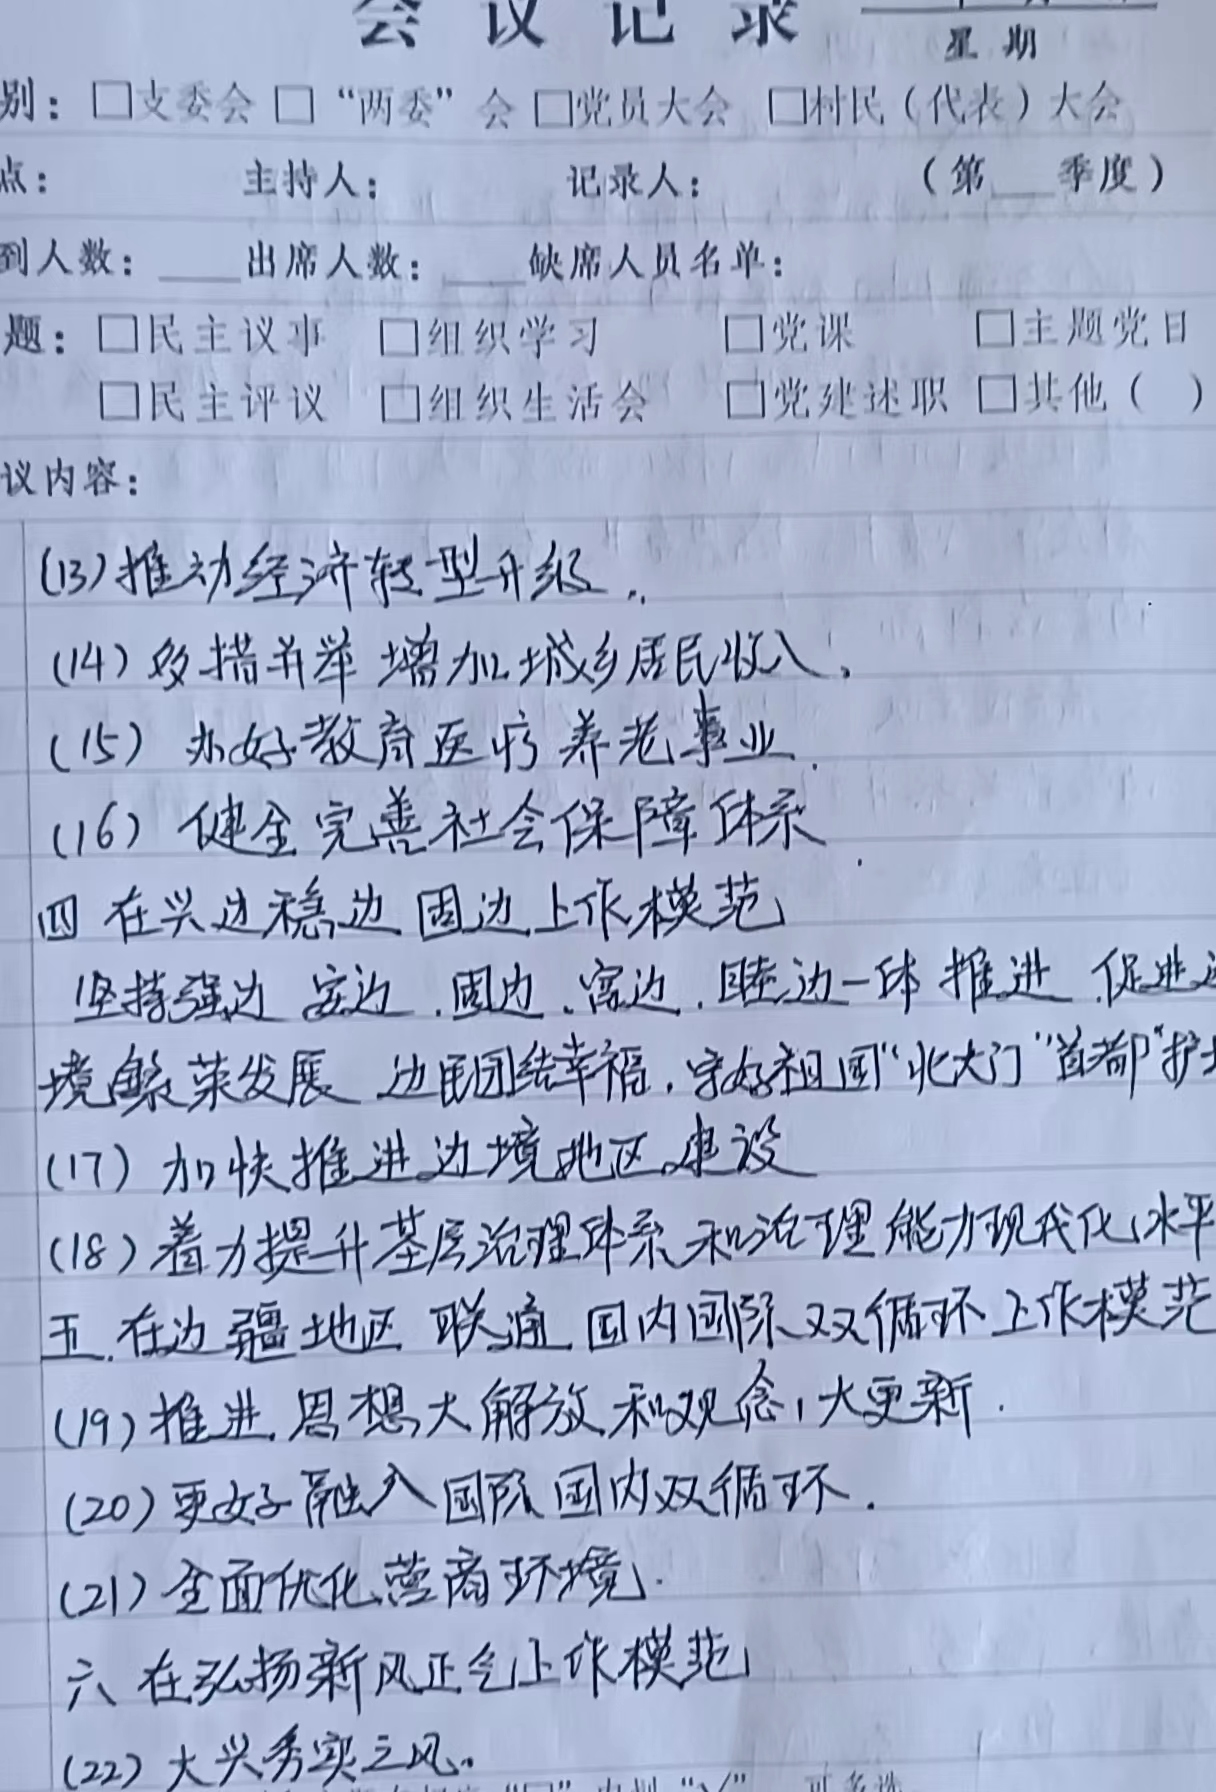 会议记录
星期
别：□支委会 □“两委”会 □党员大会 □村民（代表）大会
点： 主持人： 记录人： （第__季度）
到人数：___出席人数：___缺席人员名单：
题：□民主议事 □组织学习 □党课 □主题党日
□民主评议 □组织生活会 □党建述职 □其他（ ）
议内容：
(13)推动经济转型升级.
(14)多措并举增加城乡居民收入.
(15)办好教育医疗养老事业.
(16)健全完善社会保障体系
四 在兴边稳边固边上作模范
坚持强边 安边.固边.富边.睦边一体推进.促进边
境繁荣发展 边民团结幸福.守好祖国“北大门”首都“护城
(17)加快推进边境地区建设
(18)着力提升基层治理体系和治理能力现代化水平
五.在边疆地区联通国内国际双循环上作模范
(19)推进思想大解放和观念大更新.
(20)更好融入国际国内双循环.
(21)全面优化营商环境.
六、在弘扬新风正气上作模范
(22)大兴务实之风.
可多选